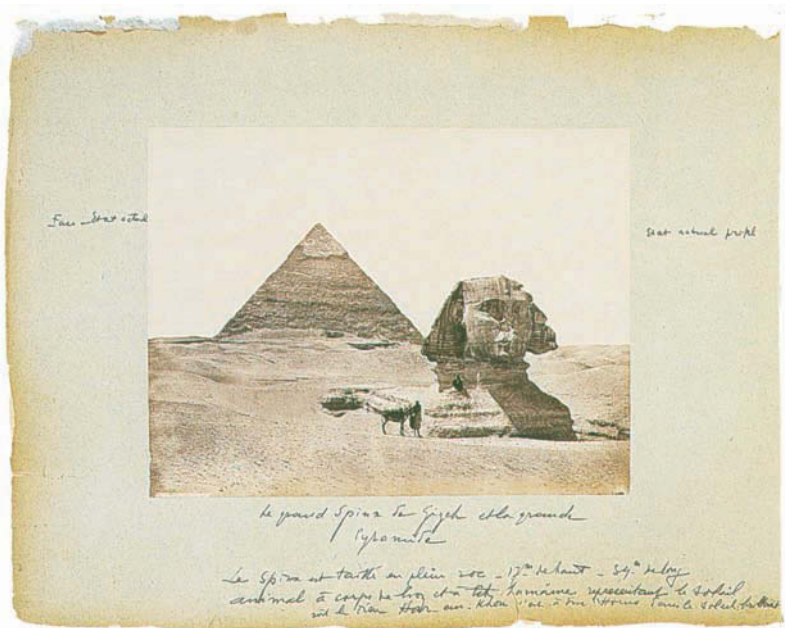 Face - Etat actuel
Etat actuel profil
Le grand Spinx de Gizeh et la grande
Pyramide
Le Spinx est taillé en plein roc - 17m de haut - 39m de long
animal à corps de lion et à tête humaine représentant le soleil
soit le dieu Har-em-Khou c'est à dire Horus dans le soleil